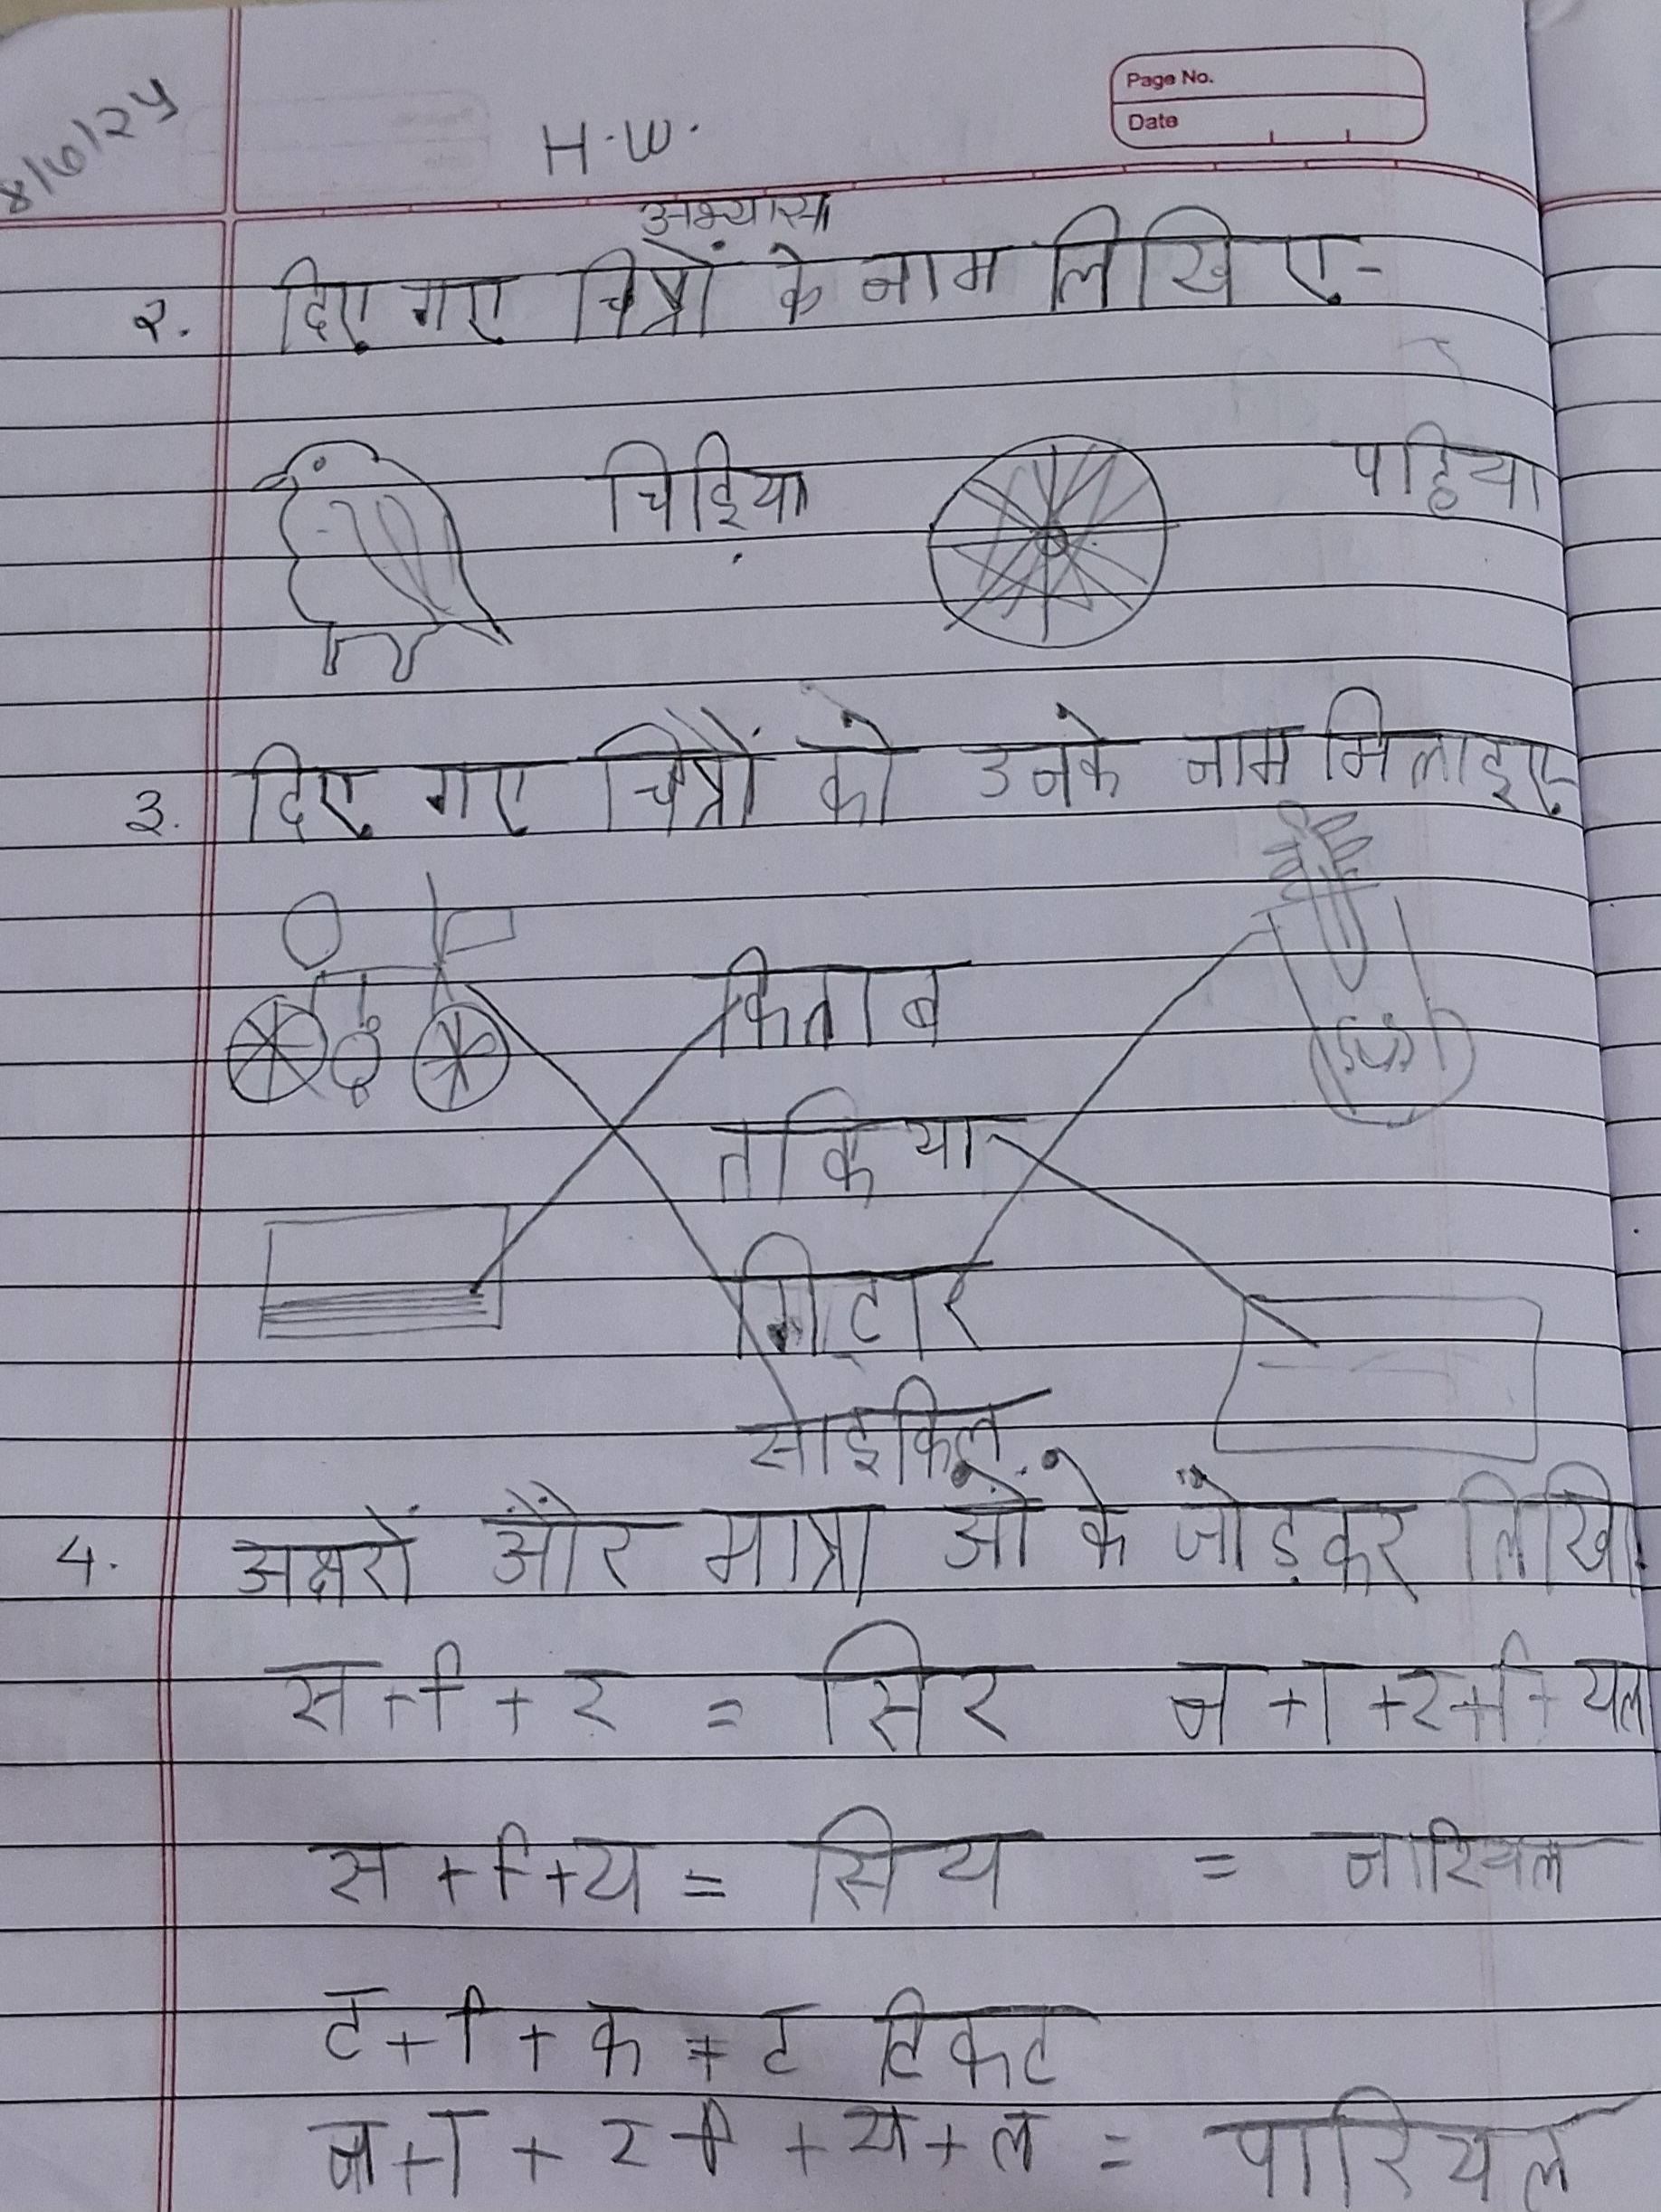 Page No.
Date
8/6/24
H.W.
अभ्यास
२. दिए गए चित्रों के नाम लिखिए-
चिड़िया पहिया
३. दिए गए चित्रों को उनके नाम मिलाइए-
किताब
तकिया
गिटार
साइकिल
4. अक्षरों और मात्रा ओं के जोड़कर लिखि
स + ि + र = सिर न + ा + र + ि + यल
स + ि + य = सिय = नारियल
ट + ि + क + ट टिकट
न + ा + र + ि + य + ल = पारियल